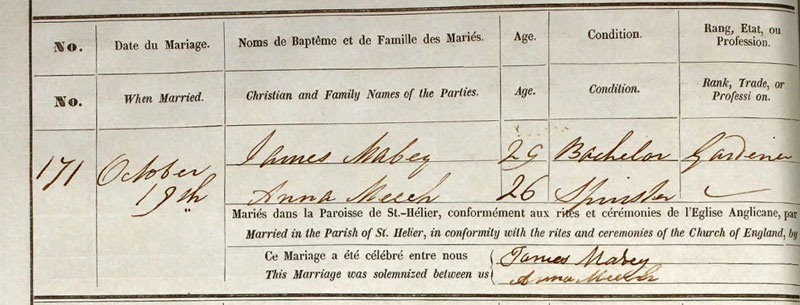 No. Date du Mariage. Noms de Baptême et de Famille des Mariés. Age. Condition. Rang, Etat, ou Profession.
No. When Married. Christian and Family Names of the Parties. Age. Condition. Rank, Trade, or Professi on.
171 October 19th James Mabey 29 Bachelor Gardener
Anna Meech 26 Spinster
Mariés dans la Paroisse de St.-Hélier, conformément aux rites et cérémonies de l'Eglise Anglicane, par
Married in the Parish of St. Helier, in conformity with the rites and ceremonies of the Church of England, by
Ce Mariage a été célébré entre nous James Mabey
This Marriage was solemnized between us Anna Meech